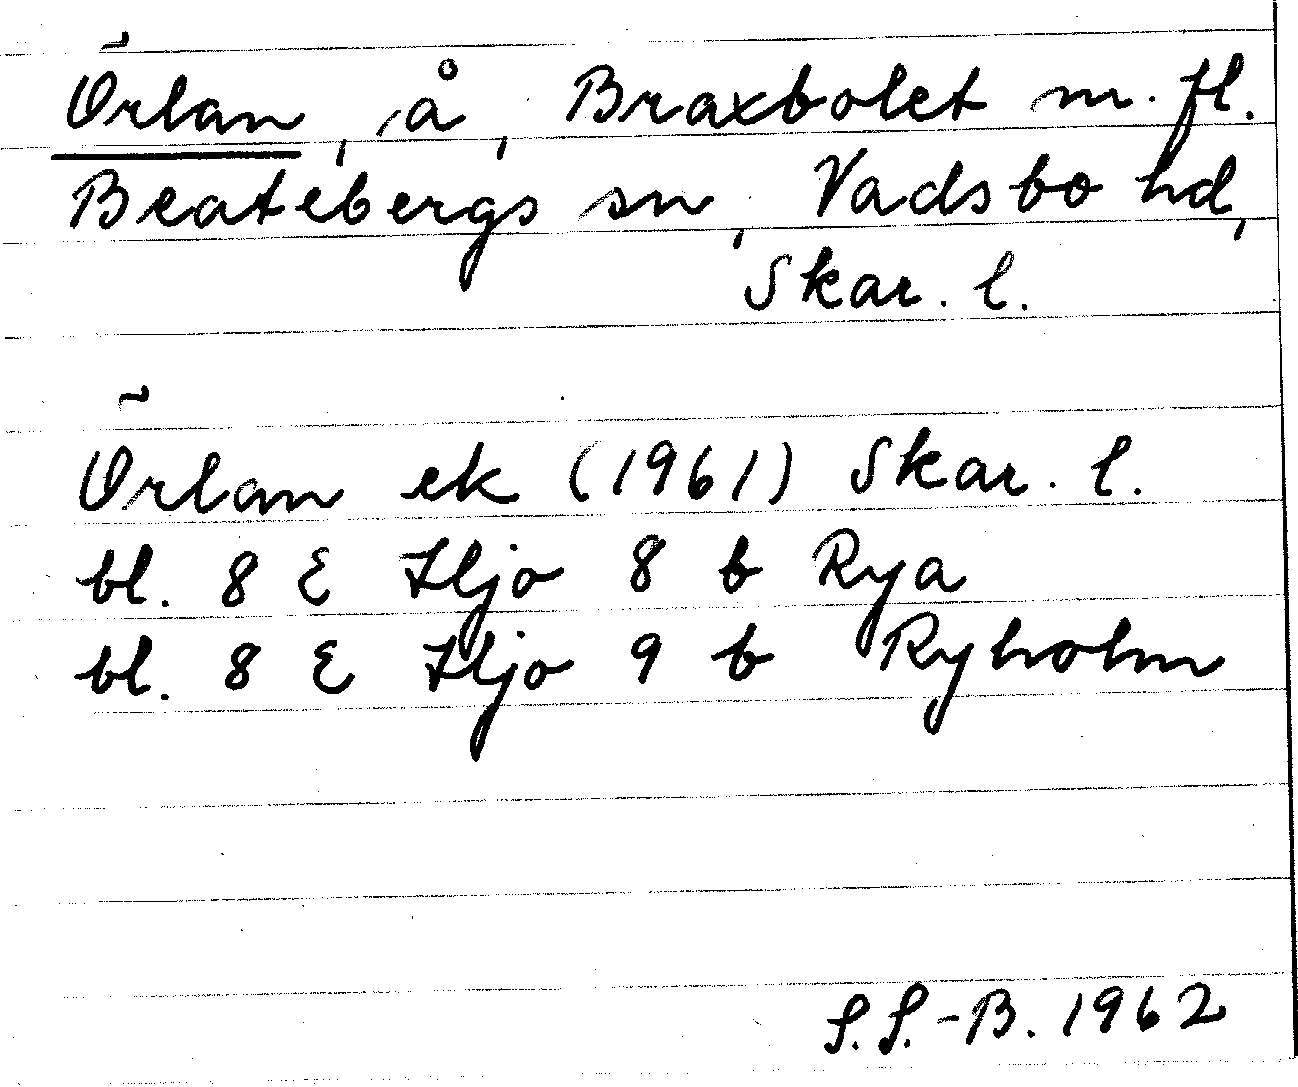 Örlan, å, Braxbolet m. fl.
Beatebergs sn, Vadsbo hd,
Skar. l.
Örlan ek (1961) Skar. l.
bl. 8 E Hjo 8 b Rya
bl. 8 E Hjo 9 b Ryholm
S.S.-B. 1962